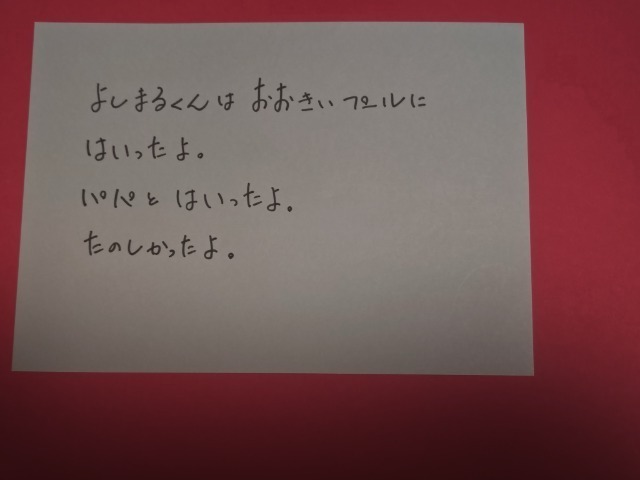 よしまるくんは おおきいプールに
はいったよ。
パパと はいったよ。
たのしかったよ。